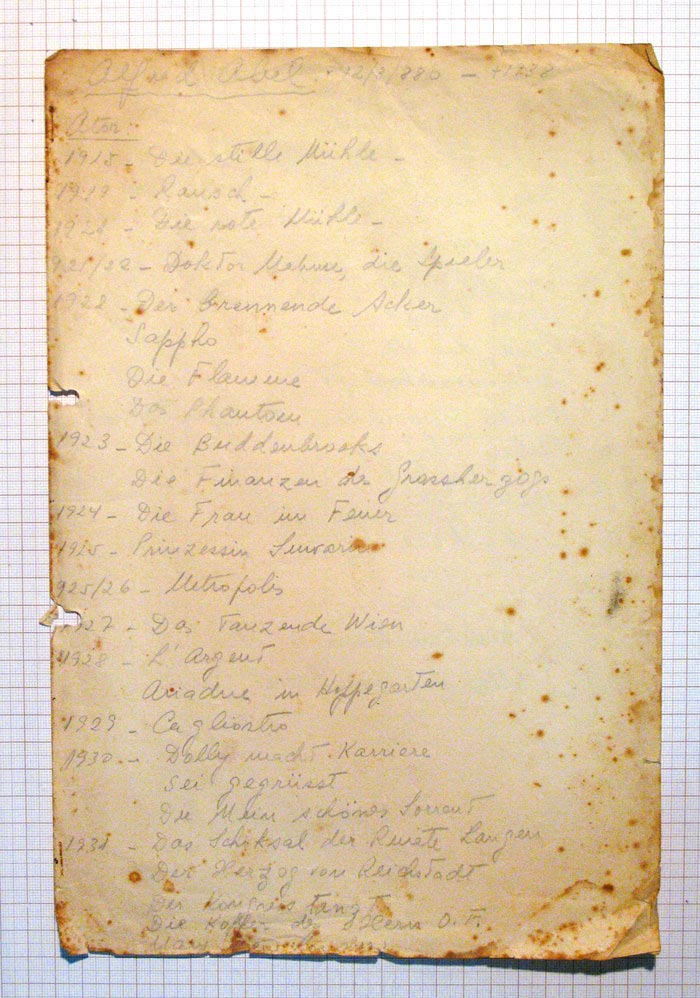 Alfred Abel - 12/3/880 - +1938
Ator:
1915 - Die stille Mühle -
1919 - Rausch -
1921 - Die rote Mühle -
921/22 - Doktor die Spieler
1922 - Der brennende Acker
Sappho
Die Flamme
Das Phantom
1923 - Die Buddenbrooks
Die Finanzen des Grossherzogs
1924 - Die Frau im Feuer
1925 - Prinzessin
925/26 - Metropolis
1927 - Das Tanzende Wien
1928 - L'Argent
Ariadne in Hoppegarten
1929 - Cagliostro
1930 - Dolly macht Karriere
Sei gegrüsst
Die Mein schönes Sorrent
1931 - Das Schiksal der Renate Langen
Der Herzog von Reichstadt
Der Kongress tanzt
Die des Herrn O.F.
Mary